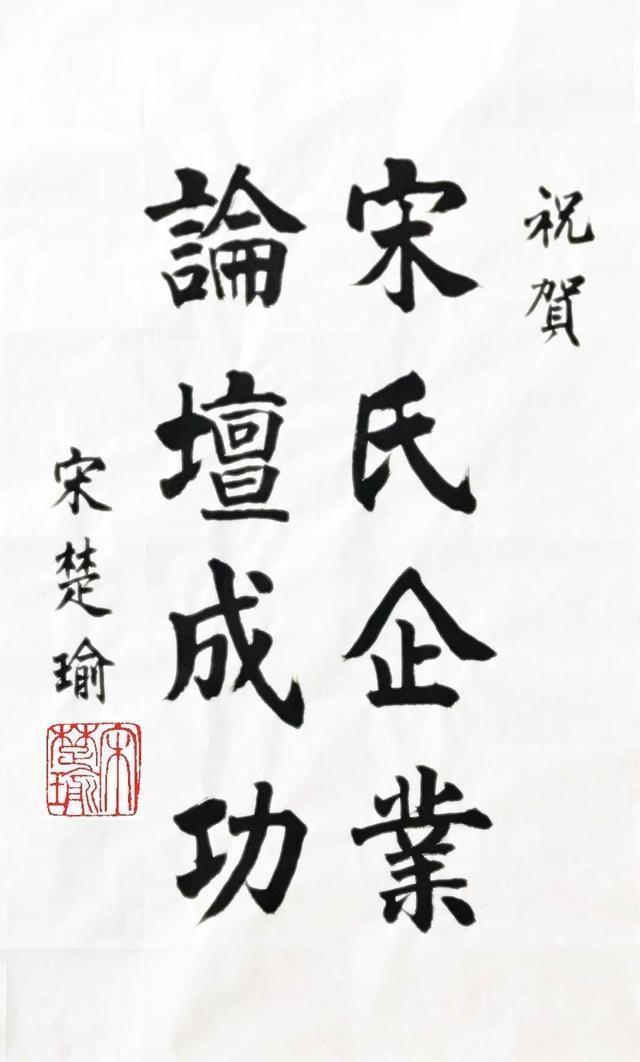 祝賀
宋氏企業
論壇成功
宋楚瑜
宋楚瑜